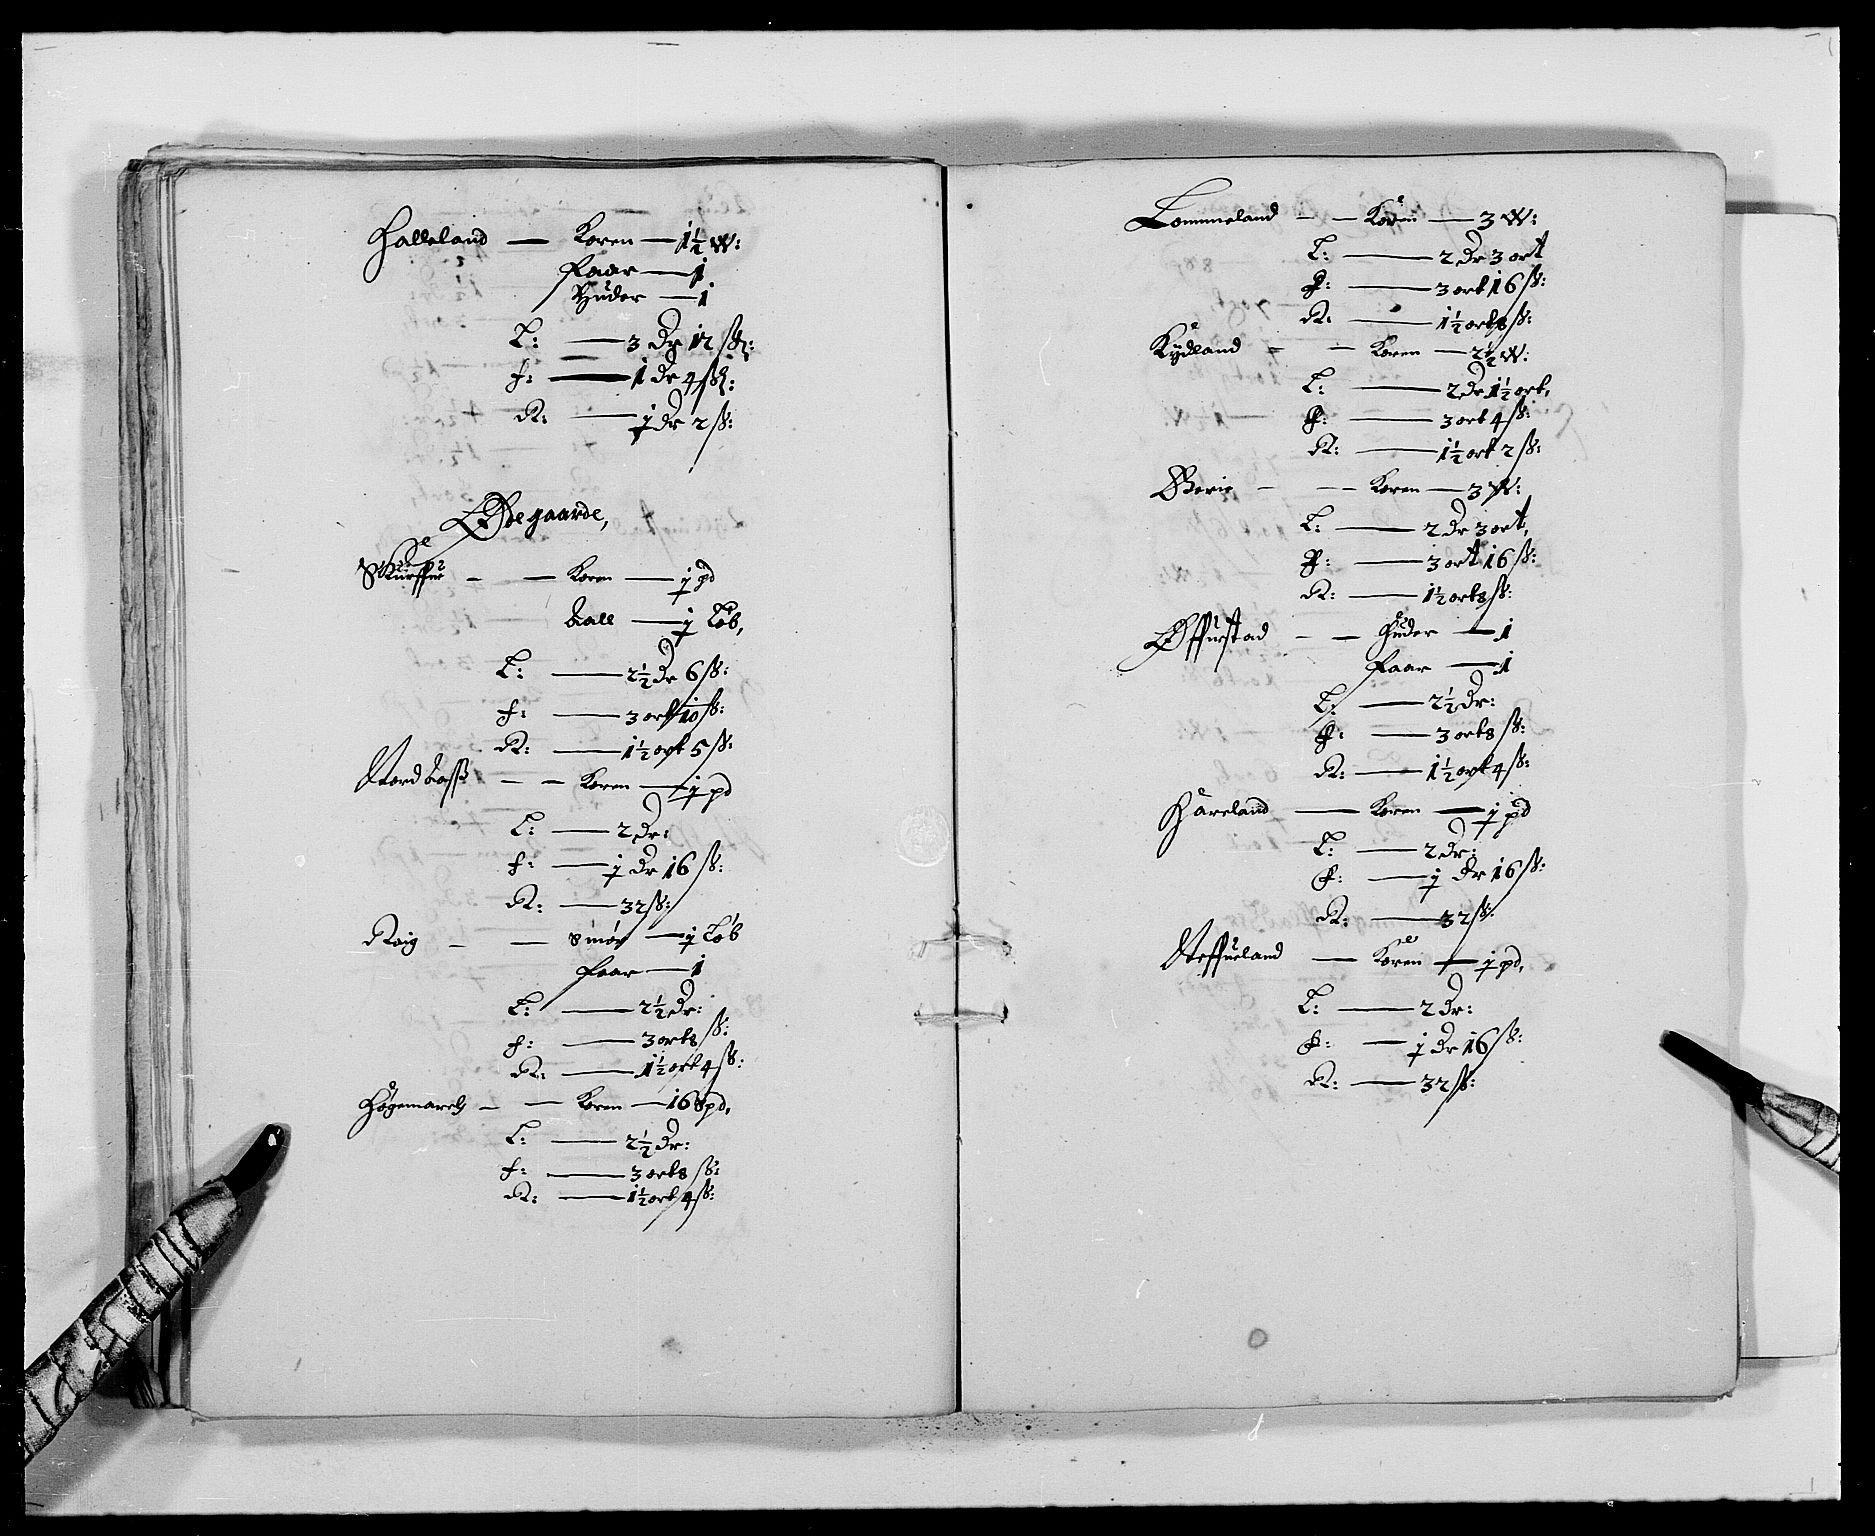 Halleland — Koren — 1½ W:
Faar — 1
Huder — 1
L: — 3 Dr 12 ß:
f: — 1 dr 4 ß:
R: — j dr 2 ß:
Ødegaarde,
Koren — j pd
Kall — j Løb,
L: — 2½ Dr 6 ß:
f: — 3 ort 10 ß:
R: — 1½ ort 5 ß:
Nord — — Koren — j pd
L: — 2 Dr:
f: — j Dr 16 ß:
R: — 32 ß:
Roig — — Smör — j Løb
Faar — 1
L: — 2½ Dr:
f: — 3 ort 8 ß:
R: — 1½ ort 4 ß:
Høgemarck — — Koren — 16 8pd,
L: — 2½ Dr:
f: — 3 ort 8 ß:
R: — 1½ ort 4 ß:
Lommeland — — Koren — 3 W:
L: — 2 Dr 3 ort
F: — 3 ort 16 ß:
R: — 1½ ort 8 ß:
Kydland — — Koren — 2½ W:
L: — 2 Dr 1½ ort,
F: — 3 ort 4 ß:
R: — 1½ ort 2 ß:
Berie — — Koren — 3 W:
L: — 2 Dr 3 ort,
F: — 3 ort 16 ß:
R: — 1½ ort 8 ß:
Øffurstad — — Huder — 1
Faar — 1
L: — 2½ Dr:
F: — 3 ort 8 ß:
R: — 1½ ort 4 ß:
Håreland — Koren — j pd
L: — 2 Dr:
F: — j Dr 16 ß:
R: — 32 ß:
Neffueland — Koren — j pd,
L: — 2 Dr:
F: — j Dr 16 ß:
R: — 32 ß: